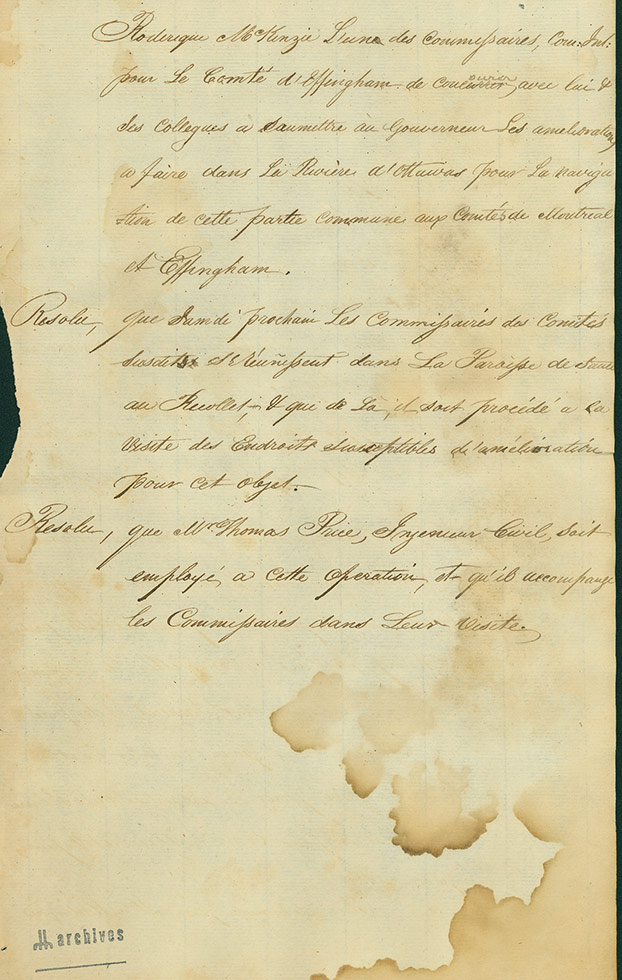 Roderique McKenzie L'une des Commissaires, Com: Int:
pour Le Comté d'Effingham de concourir avec lui &
Ses Collegues a Saumettre au Gouverneur Les ameliorations
a faire dans La Rivière d'Ottawas pour La naviga
tion de cette partie commune aux Comtés de Montreal
et Effingham.
Resolu, que Samdi prochain Les Commissaires des Comtés
Susdits se réunissent dans La Paroisse de Sault
au Recollet, & que de La, il soit procédé a La
Visite des Endroits susceptibles d'amélioration
pour cet objet.
Resolu, que Mr. Thomas Price, Ingenieur Civil, soit
employé a cette operation, et qu'il accompagne
les Commissaires dans Leur Visite.
archives